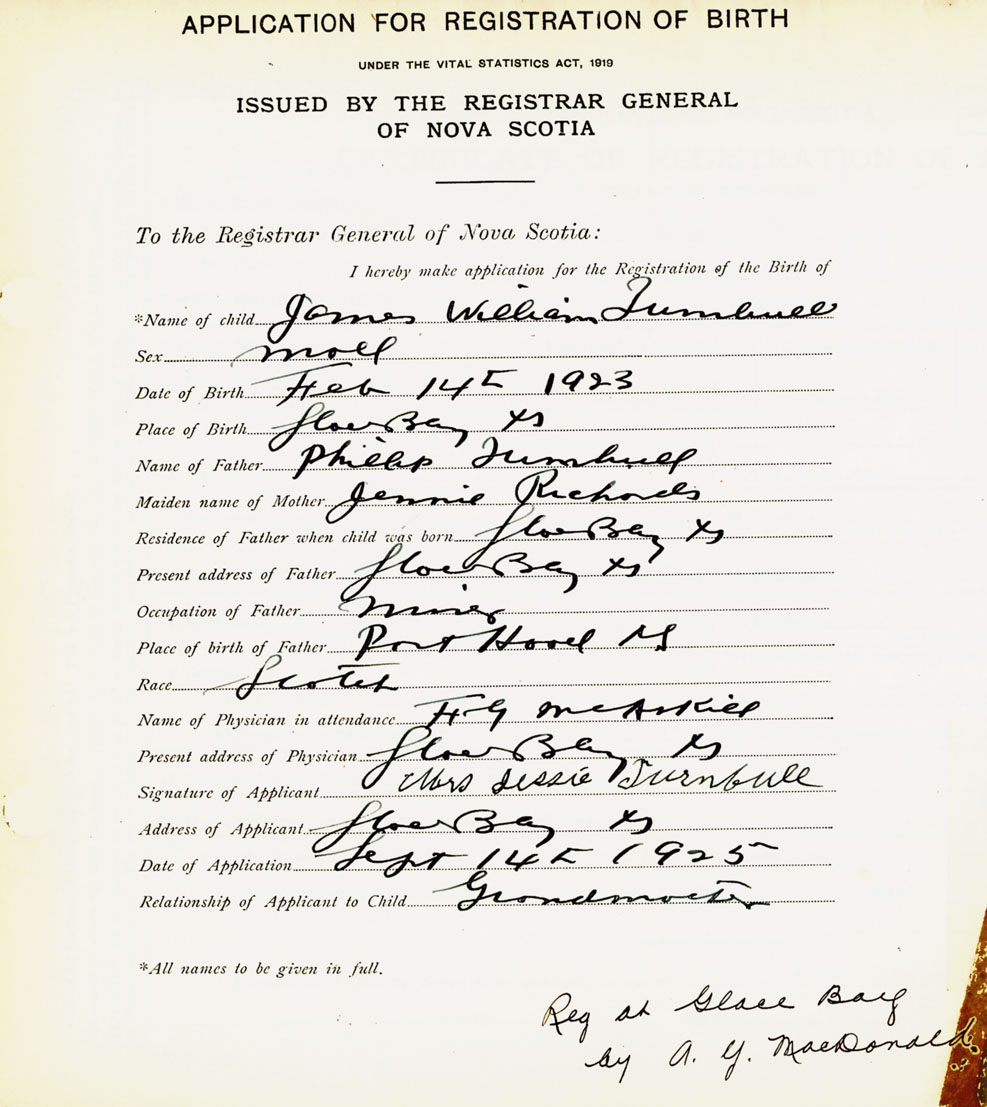 APPLICATION FOR REGISTRATION OF BIRTH
UNDER THE VITAL STATISTICS ACT, 1919
ISSUED BY THE REGISTRAR GENERAL
OF NOVA SCOTIA
To the Registrar General of Nova Scotia:
I hereby make application for the Registration of the Birth of
*Name of child James William Turnbull
Sex Mall
Date of Birth Feb 14th 1923
Place of Birth Glace Bay NS
Name of Father Phillip Turnbull
Maiden name of Mother Jennie Richards
Residence of Father when child was born Glace Bay NS
Present address of Father Glace Bay NS
Occupation of Father Miner
Place of birth of Father Port Hood NS
Race Scotch
Name of Physician in attendance H G McAskill
Present address of Physician Glace Bay NS
Signature of Applicant Mrs Jessie Turnbull
Address of Applicant Glace Bay NS
Date of Application Sept 14th 1925
Relationship of Applicant to Child Grandmother
*All names to be given in full.
Reg at Glace Bay
by A. Y. MacDonald.